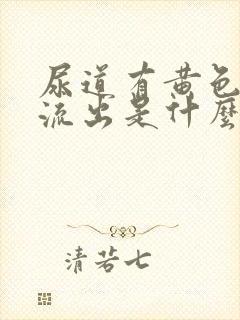 尿道有黄色
流出是什麼
清若七